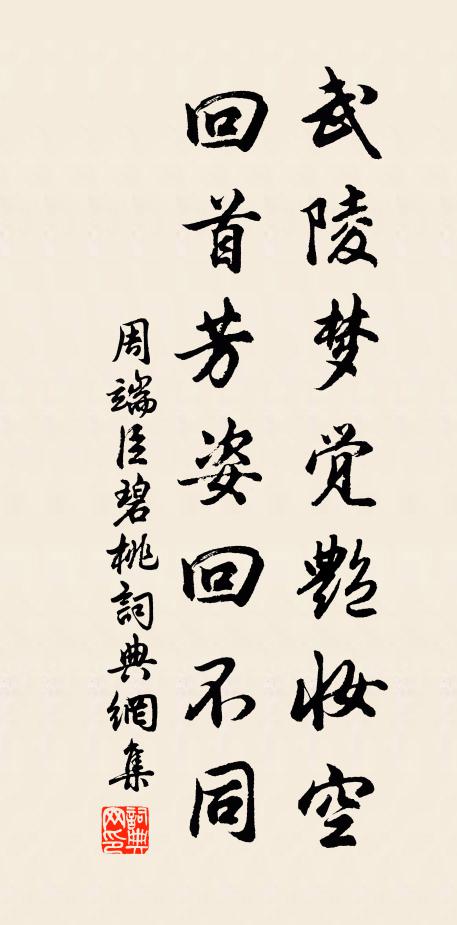 武陵梦觉艳妆空
回首芳姿回不同
周端臣碧桃詞典網集
詞典網印